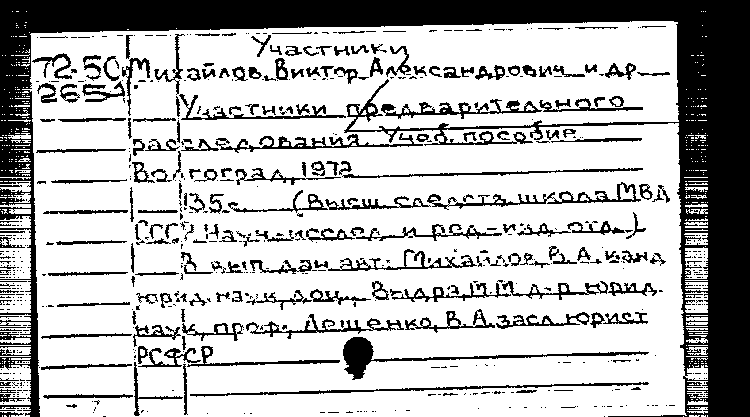 Участники
72-50 Михайлов, Виктор Александрович и др
2651
Участники предварительного
расследования. Учеб. пособие
Волгоград, 1972
135 с. (Высш. следств. школа МВД
СССР. Науч.-исслед. и ред.-изд. отд.)
В вып. дан авт.: Михайлов, В. А. канд
юрид. наук, доц., Выдра, М.М. д-р юрид.
наук, проф., Лещенко, В.А. засл. юрист
РСФСР